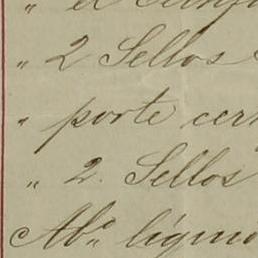 " el
" 2 Sellos
" porte cer
" 2. Sellos
Abº líqui